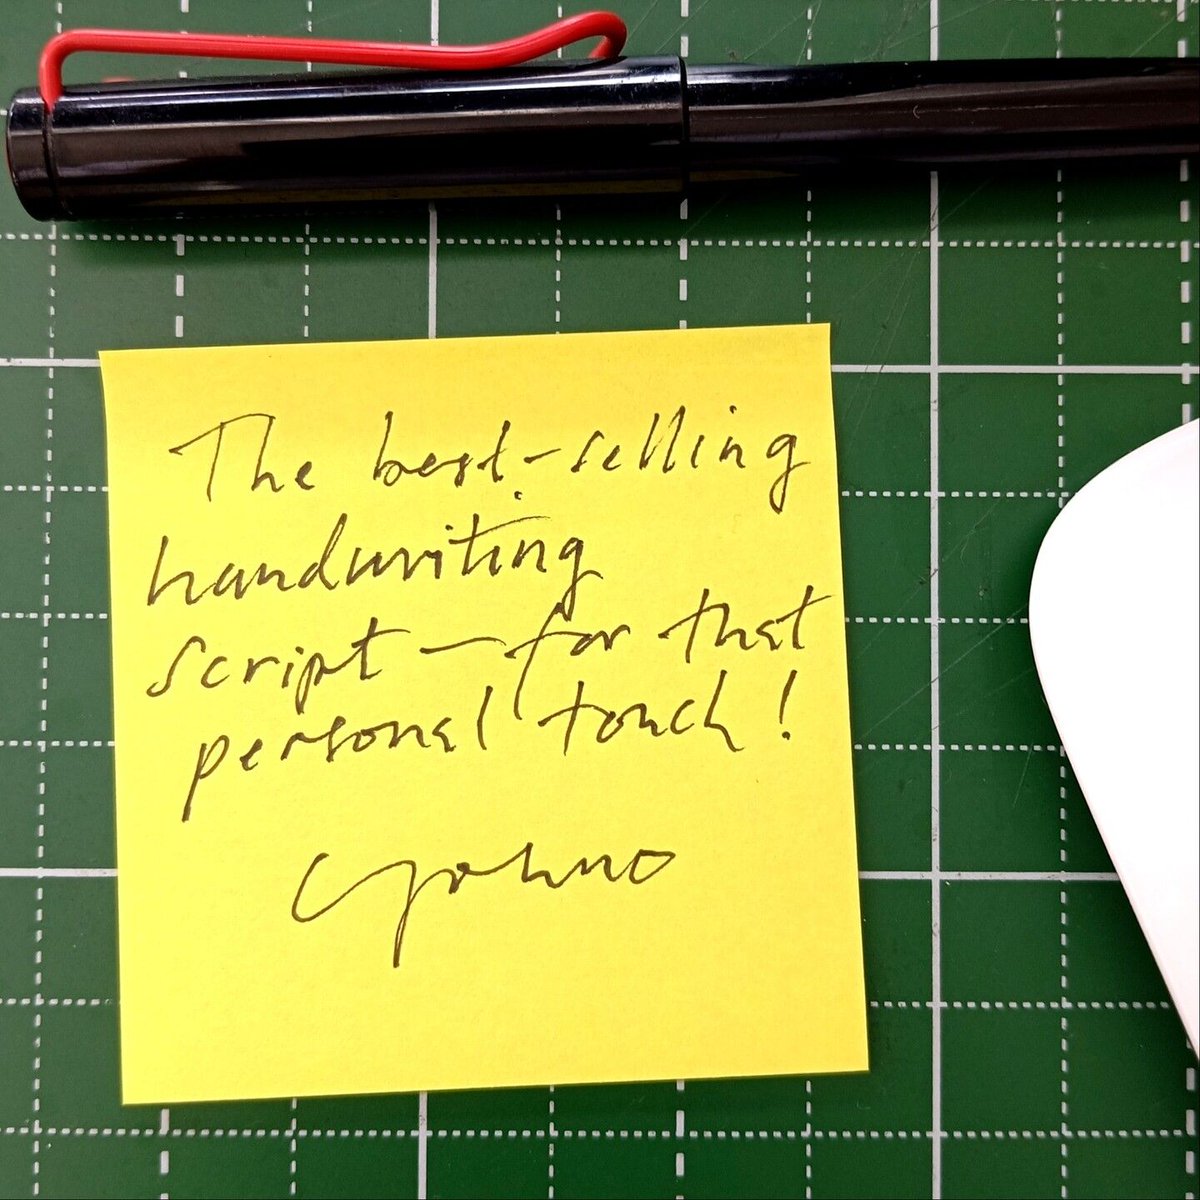 The best-selling
handwriting
script — for that
personal touch!